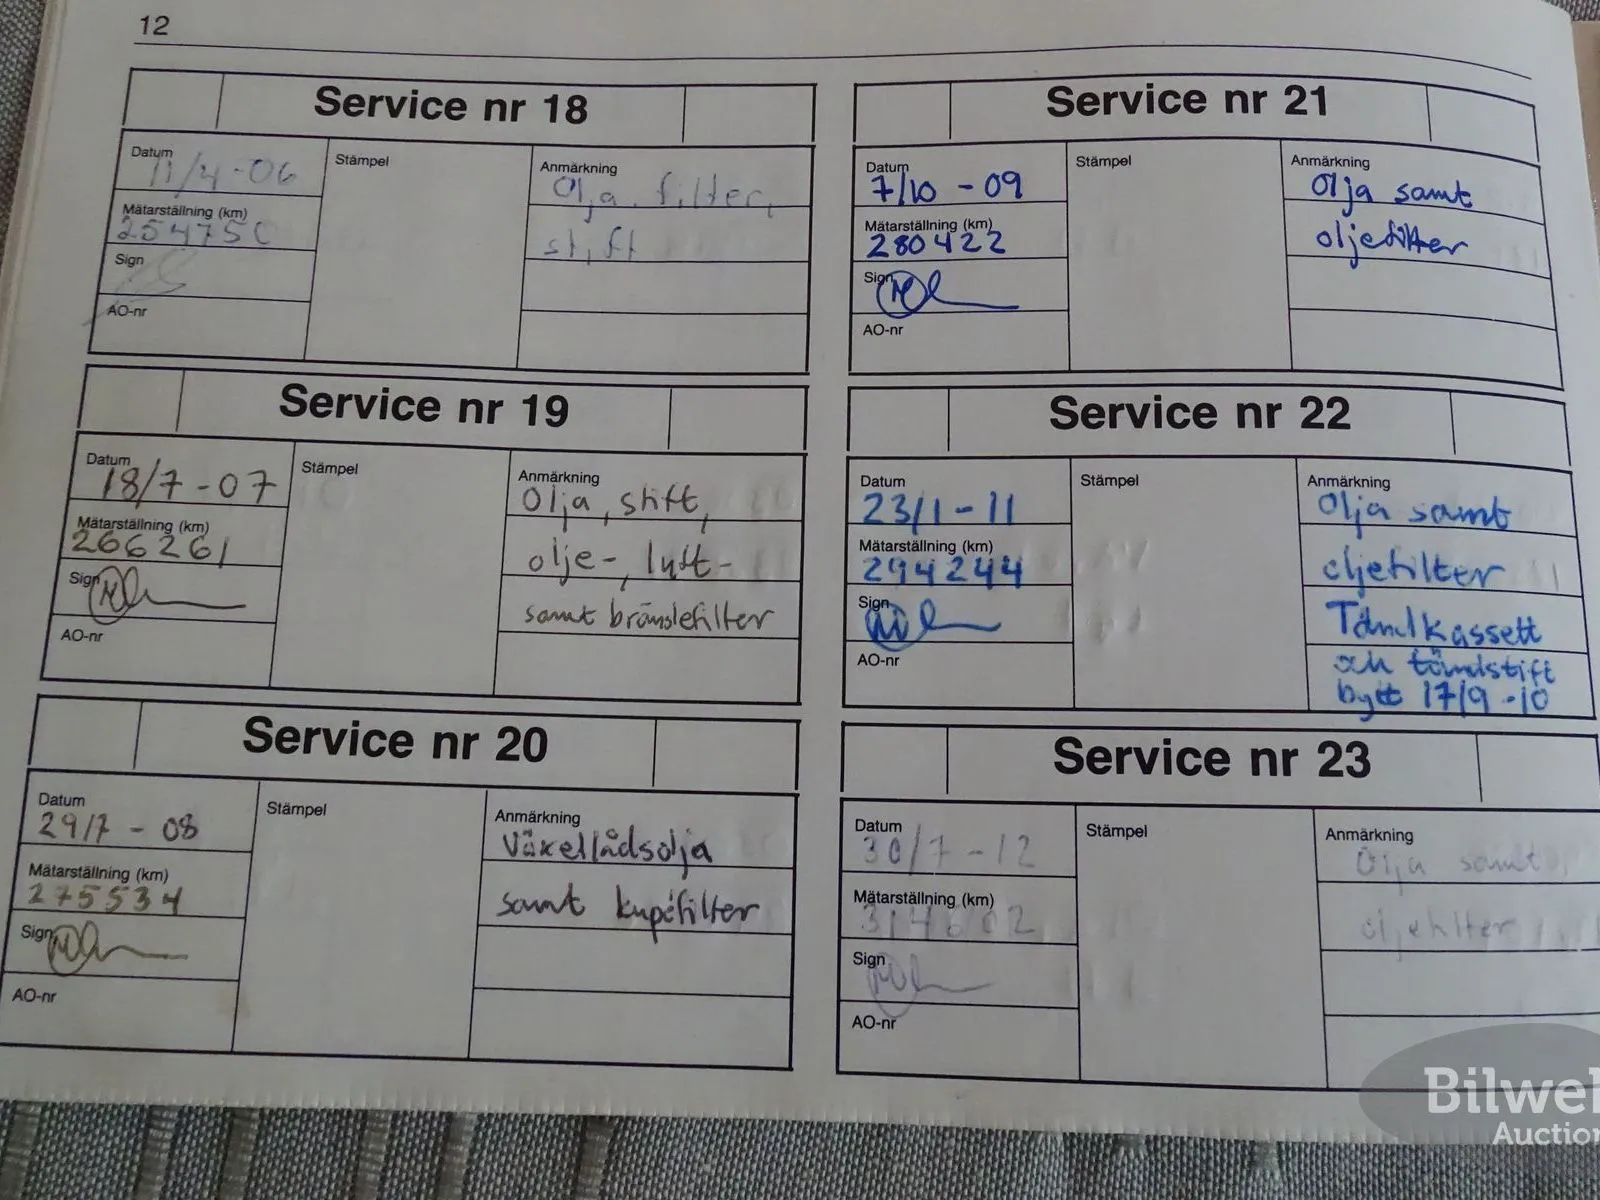 12
Service nr 18
Datum
11/4-06
Mätarställning (km)
254750
Sign
AO-nr
Stämpel
Anmärkning
Olja, filter,
stift
Service nr 19
Datum
18/7-07
Mätarställning (km)
266261
Sign
AO-nr
Stämpel
Anmärkning
Olja, stift,
olje-, luft-
samt bränslefilter
Service nr 20
Datum
29/7-08
Mätarställning (km)
275534
Sign
AO-nr
Stämpel
Anmärkning
Växellådsolja
samt kupéfilter
Service nr 21
Datum
7/10-09
Mätarställning (km)
280422
Sign
AO-nr
Stämpel
Anmärkning
Olja samt
oljefilter
Service nr 22
Datum
23/1-11
Mätarställning (km)
294244
Sign
AO-nr
Stämpel
Anmärkning
Olja samt
oljefilter
Tändkassett
och tändstift
bytt 17/9-10
Service nr 23
Datum
30/7-12
Mätarställning (km)
314602
Sign
AO-nr
Stämpel
Anmärkning
Olja samt
oljefilter
Bilwe
Auction